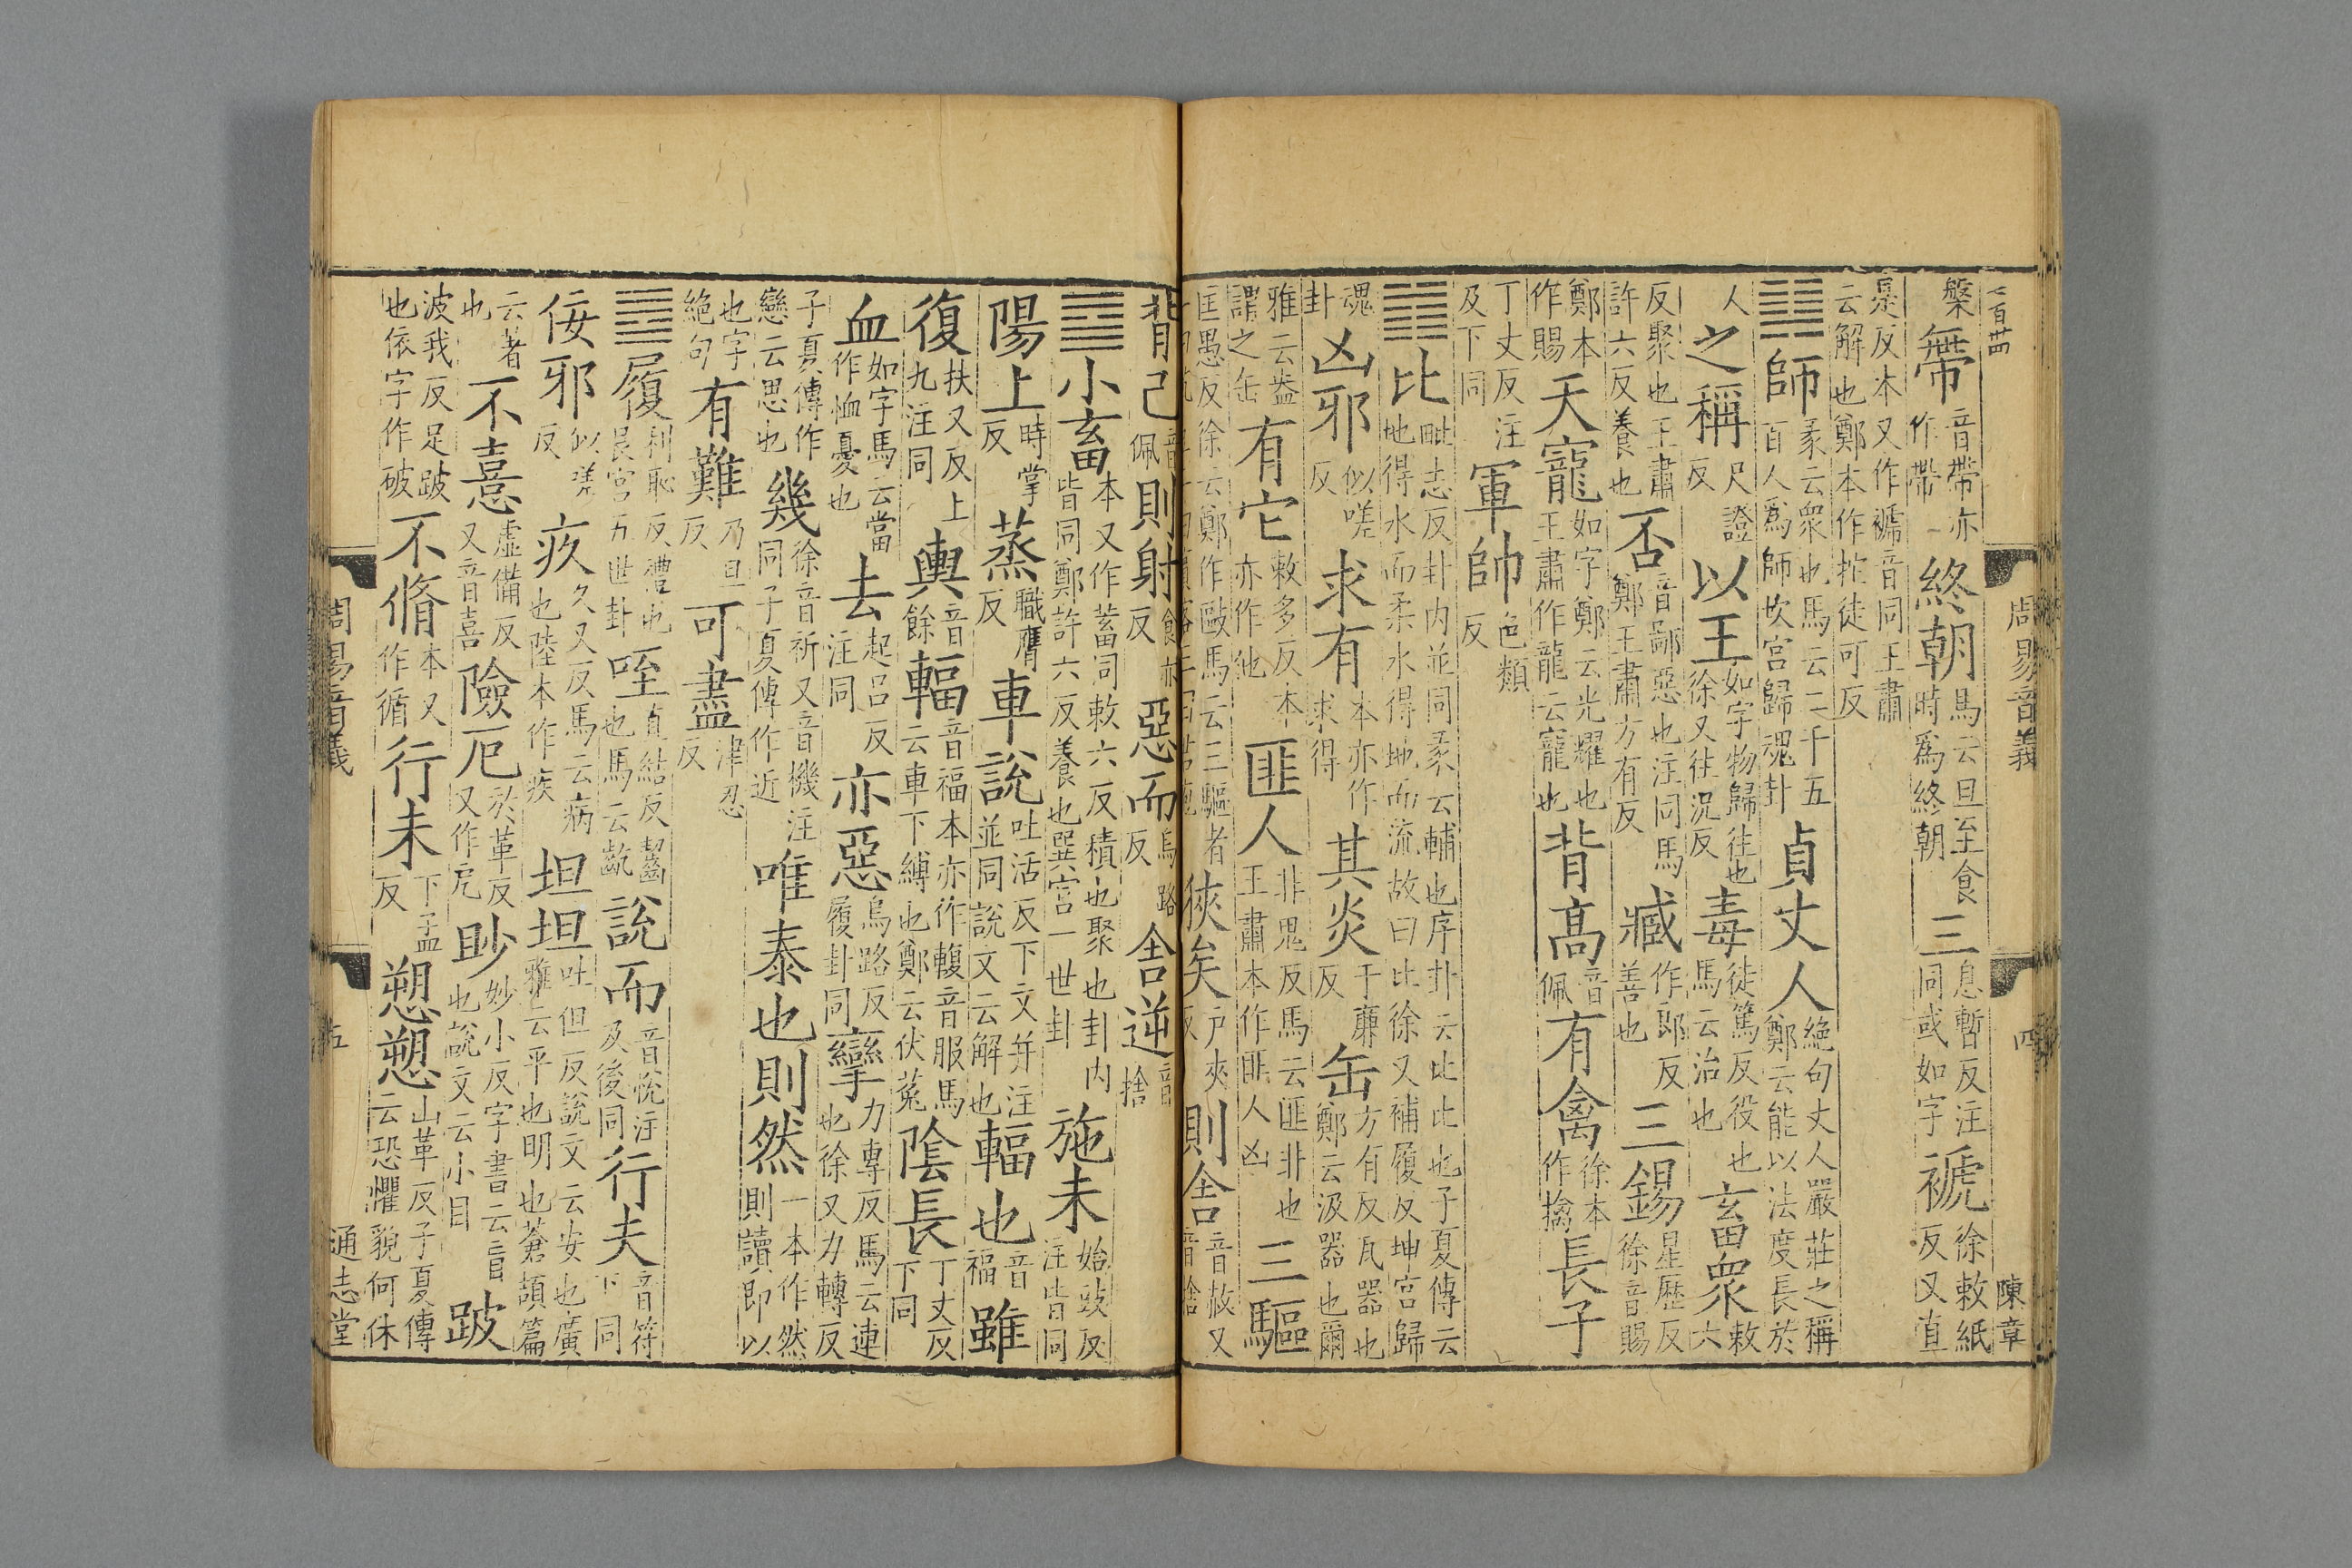 二百廿四 周易音義 四 陳章
槃 帶 音帶亦作帶 終朝 馬云旦至食時為終朝 三 息暫反注同或如字 褫 徐敕紙反又直
是反本又作褫音同王肅云解也鄭本作拕徒可反
䷆師 彖云衆也馬云二千五百人為師坎宫歸魂卦 貞丈人 絶句丈人嚴莊之稱鄭云能以法度長於
人 之稱 尺證反 以王 如字物歸往也徐又往況反 毒 徒篤反役也馬云治也 畜衆 敕六
反聚也王肅許六反養也 否 音鄙惡也注同馬鄭王肅方有反 臧 作郎反善也 三錫 星歷反徐音賜
鄭本作賜 天寵 如字鄭云光耀也王肅作龍云寵也 背高 音佩 有禽 徐本作擒 長子
丁丈反注及下同 軍帥 色類反
䷇比 毗志反卦内並同彖云輔也序卦云比比也子夏傳云地得水而柔水得地而流故曰比徐又補履反坤宫歸
魂卦 凶邪 似嗟反 求有 本亦作求得 其炎 于廉反 缶 方有反瓦器也鄭云汲器也爾
雅云盎謂之缶 有它 敕多反本亦作他 匪人 非鬼反馬云匪非也王肅本作匪人凶 三驅
匡愚反徐云鄭作敺馬云三驅者 狹矣 户夾反 則舍 音赦又音捨
背己 音佩 則射 食亦反 惡而 烏路反 舍逆 音捨
䷈小畜 本又作蓄同敕六反積也聚也卦内皆同鄭許六反養也巽宫一世卦 施未 始豉反注皆同
陽上 時掌反 蒸 職膺反 車說 吐活反下文并注並同說文云解也 輻也 音福 雖
復 扶又反上九注同 輿 音餘 輻 音福本亦作輹音服馬云車下縛也鄭云伏菟 陰長 丁丈反下同
血 如字馬云當作恤憂也 去 起吕反注同 亦惡 烏路反履卦同 攣 力專反馬云連也徐又力轉反
子夏傳作戀云思也 幾 徐音祈又音機注同子夏傳作近 唯泰也則然 一本作然則讀即以
也字絶句 有難 乃旦反 可盡 津忍反
䷉履 利恥反禮也艮宫五世卦 咥 直結反齧也馬云齕 說而 音悅注及後同 行夫 音符下同
佞邪 似嗟反 疚 久又反馬云病也陸本作疾 坦坦 吐但反說文云安也廣雅云平也明也蒼頡篇
云著也 不憙 虚備反又音喜 險厄 於革反又作戹 眇 妙小反字書云盲也說文云小目 跛
波我反足跛也依字作破 不脩 本又作循 行未 下孟反 愬愬 山革反子夏傳云恐懼貌何休
周易音義 五 通志堂